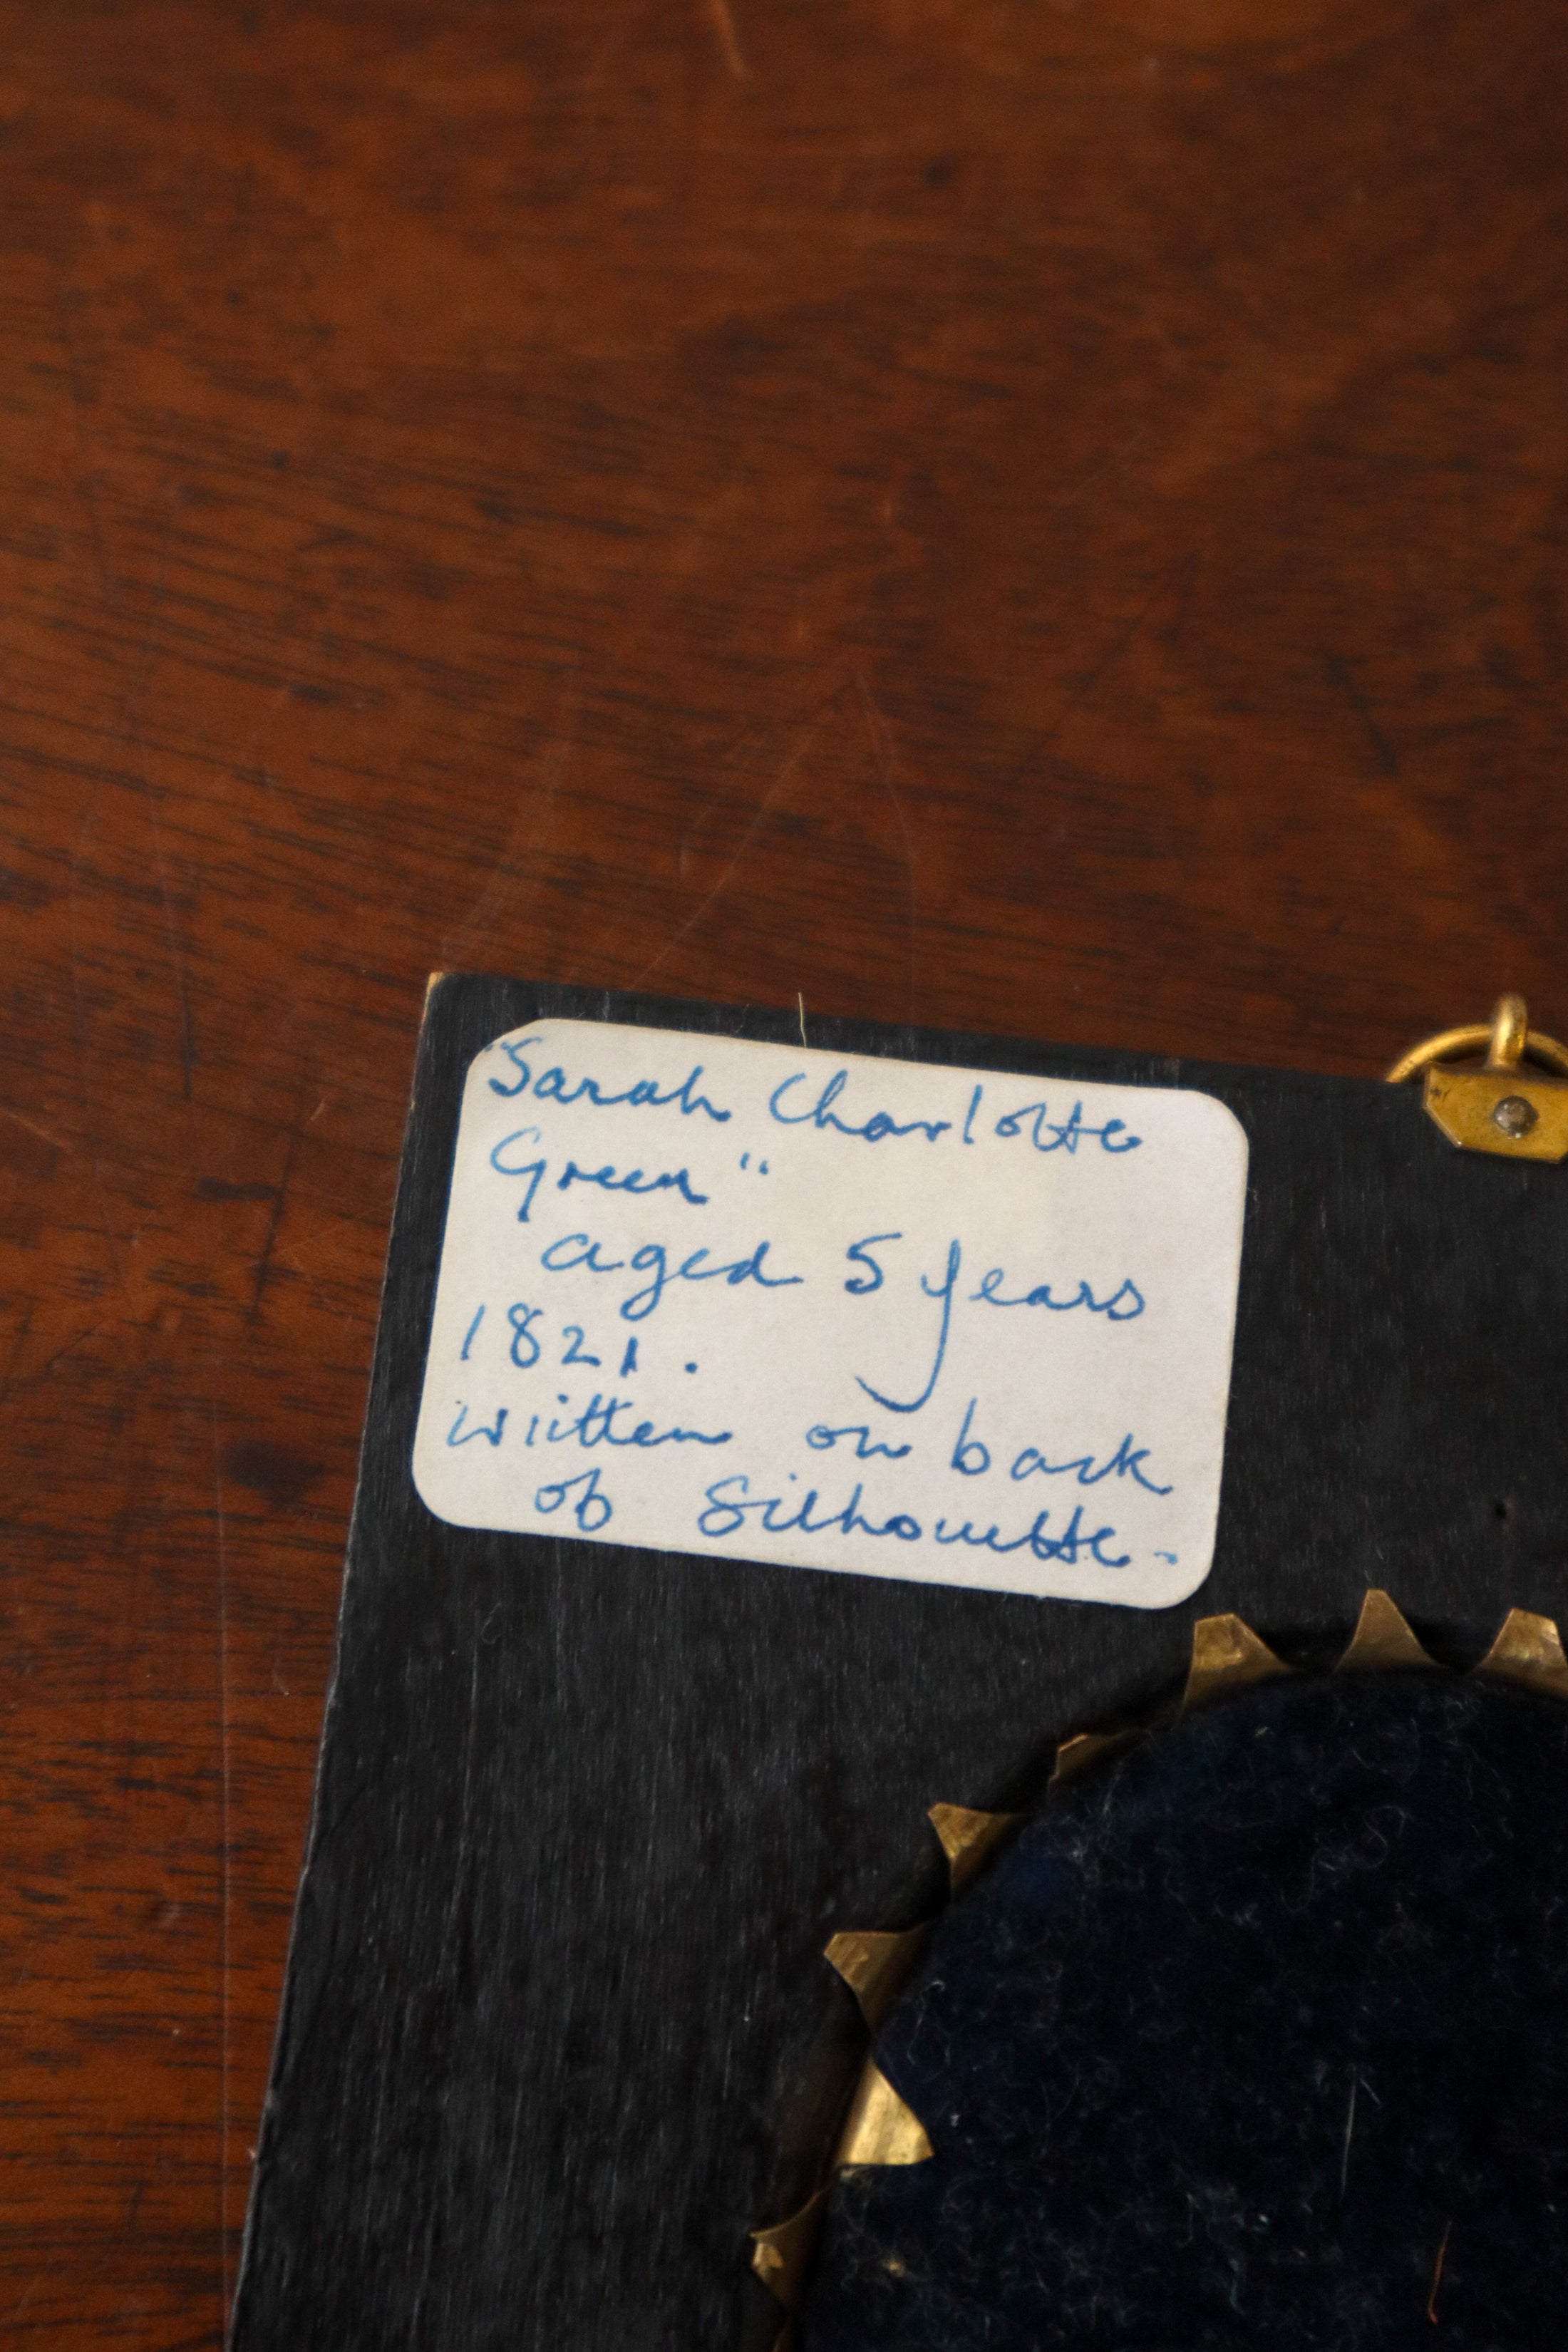 "Sarah Charlotte
Green"
aged 5 years
1821.
written on back
of Silhouette.